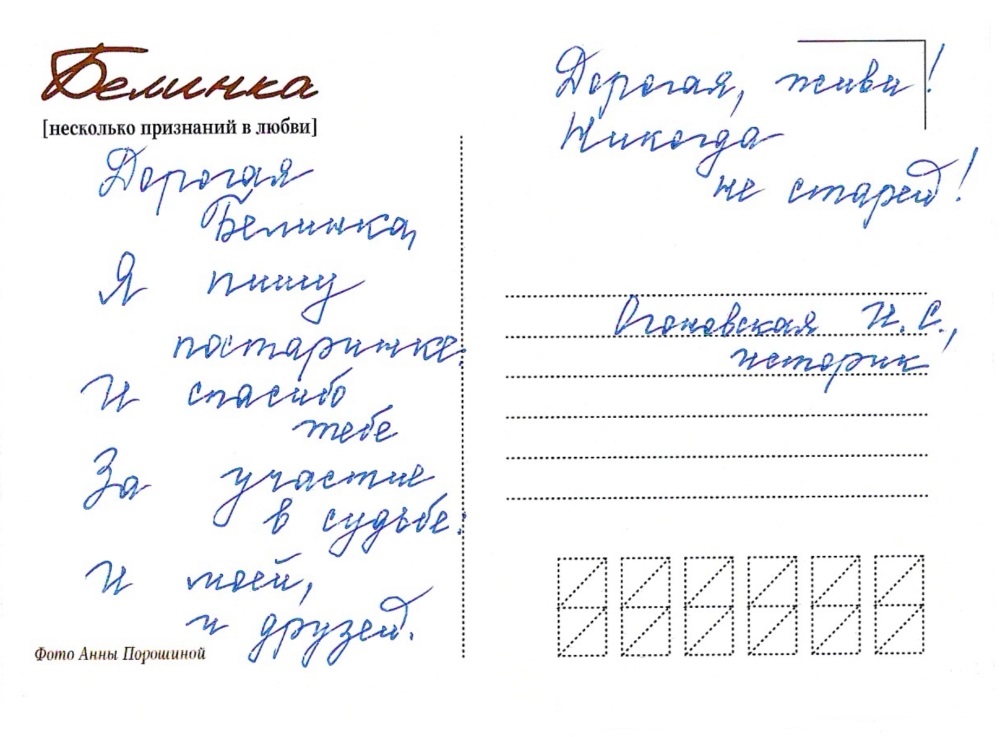 Белинка
[несколько признаний в любви]
Дорогая
Белинка,
Я пишу
постаринке:
И спасибо
тебе
За участие
в судьбе:
И моей,
и друзей.
Фото Анны Порошиной
Дорогая, живи!
Никогда
не старей!
Огоновская И. С.,
историк